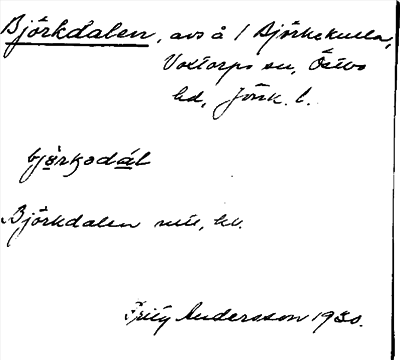 Björkdalen, avs å 1 Björkekulla,
Voxtorps sn, Östbo
hd, Jönk. l.
Björkdalen
Fritz Andersson 1930.